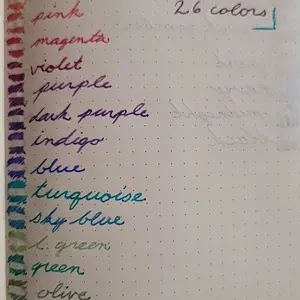 26 colors
pink
magenta
violet
purple
dark purple
indigo
blue
turquoise
sky blue
l. green
green
olive